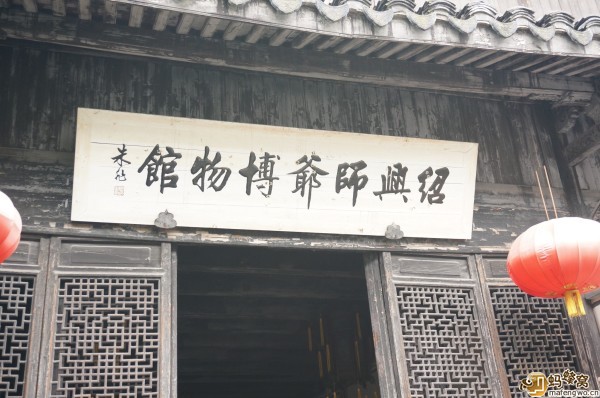 紹興師爺博物館
朱
蚂蜂窝
mafengwo.cn